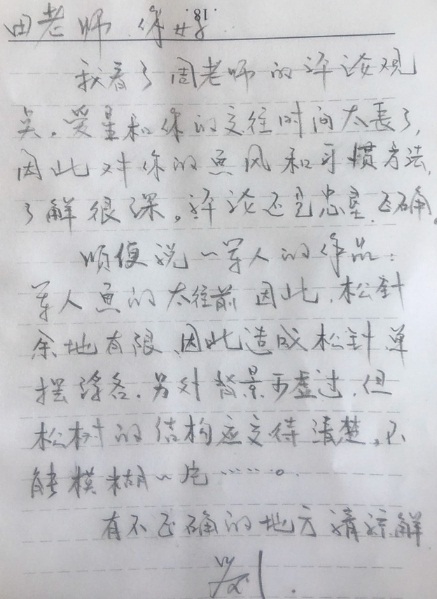 田老师 你好.
我看了周老师的评论观
点.爱星和你的交往时间太长了,
因此对你的画风和习惯方法,
了解很深。评论还是忠恳.正确.
顺便说一军人的作品:
军人画的太往前因此.松针
余地有限.因此造成松针单
摆浮各.另外背景可虚过.但
松树的结构应交待清楚.不
能模糊一片……。
有不正确的地方请谅解